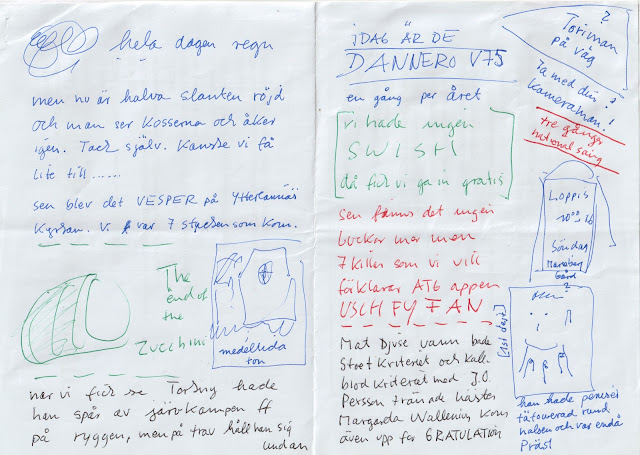 hela dagen regn
men nu är halva slanten röjd
och man ser kosserna och åker
igen. Tack själv. Kanske vi få
lite till ......
sen blev det VESPER på
Kyrkan. Vi var 7 stycken som kom.
The
end of
the
Zucchini
medeltida
ton
när vi fick se Torsny hade
han spår av järvkampen ff
på ryggen, men på trav håll han sig
undan
IDAG ÄR DE
DANNERO V75
en gång per året
vi hade ingen
SWISH
då fick vi ga in gratis
sen fanns det ingen
luckor mer men
7 killer som vi vill
förklarar ATG appen
USCH FY FAN
Mat Djuse vann både
Stoet Kriteriet och kall-
blod kriteriet med J.O.
Persson tränade häster
Margareta Wallenius kom
även upp för GRATULATION
?
Toriman
på väg
Ta med din
kameraman!
tre gånger
national sång
Loppis
10⁰⁰-16
Söndag
Marieberg
Gård
?
han hade penisei
tätowerad rund
halsen och var endå
Präst